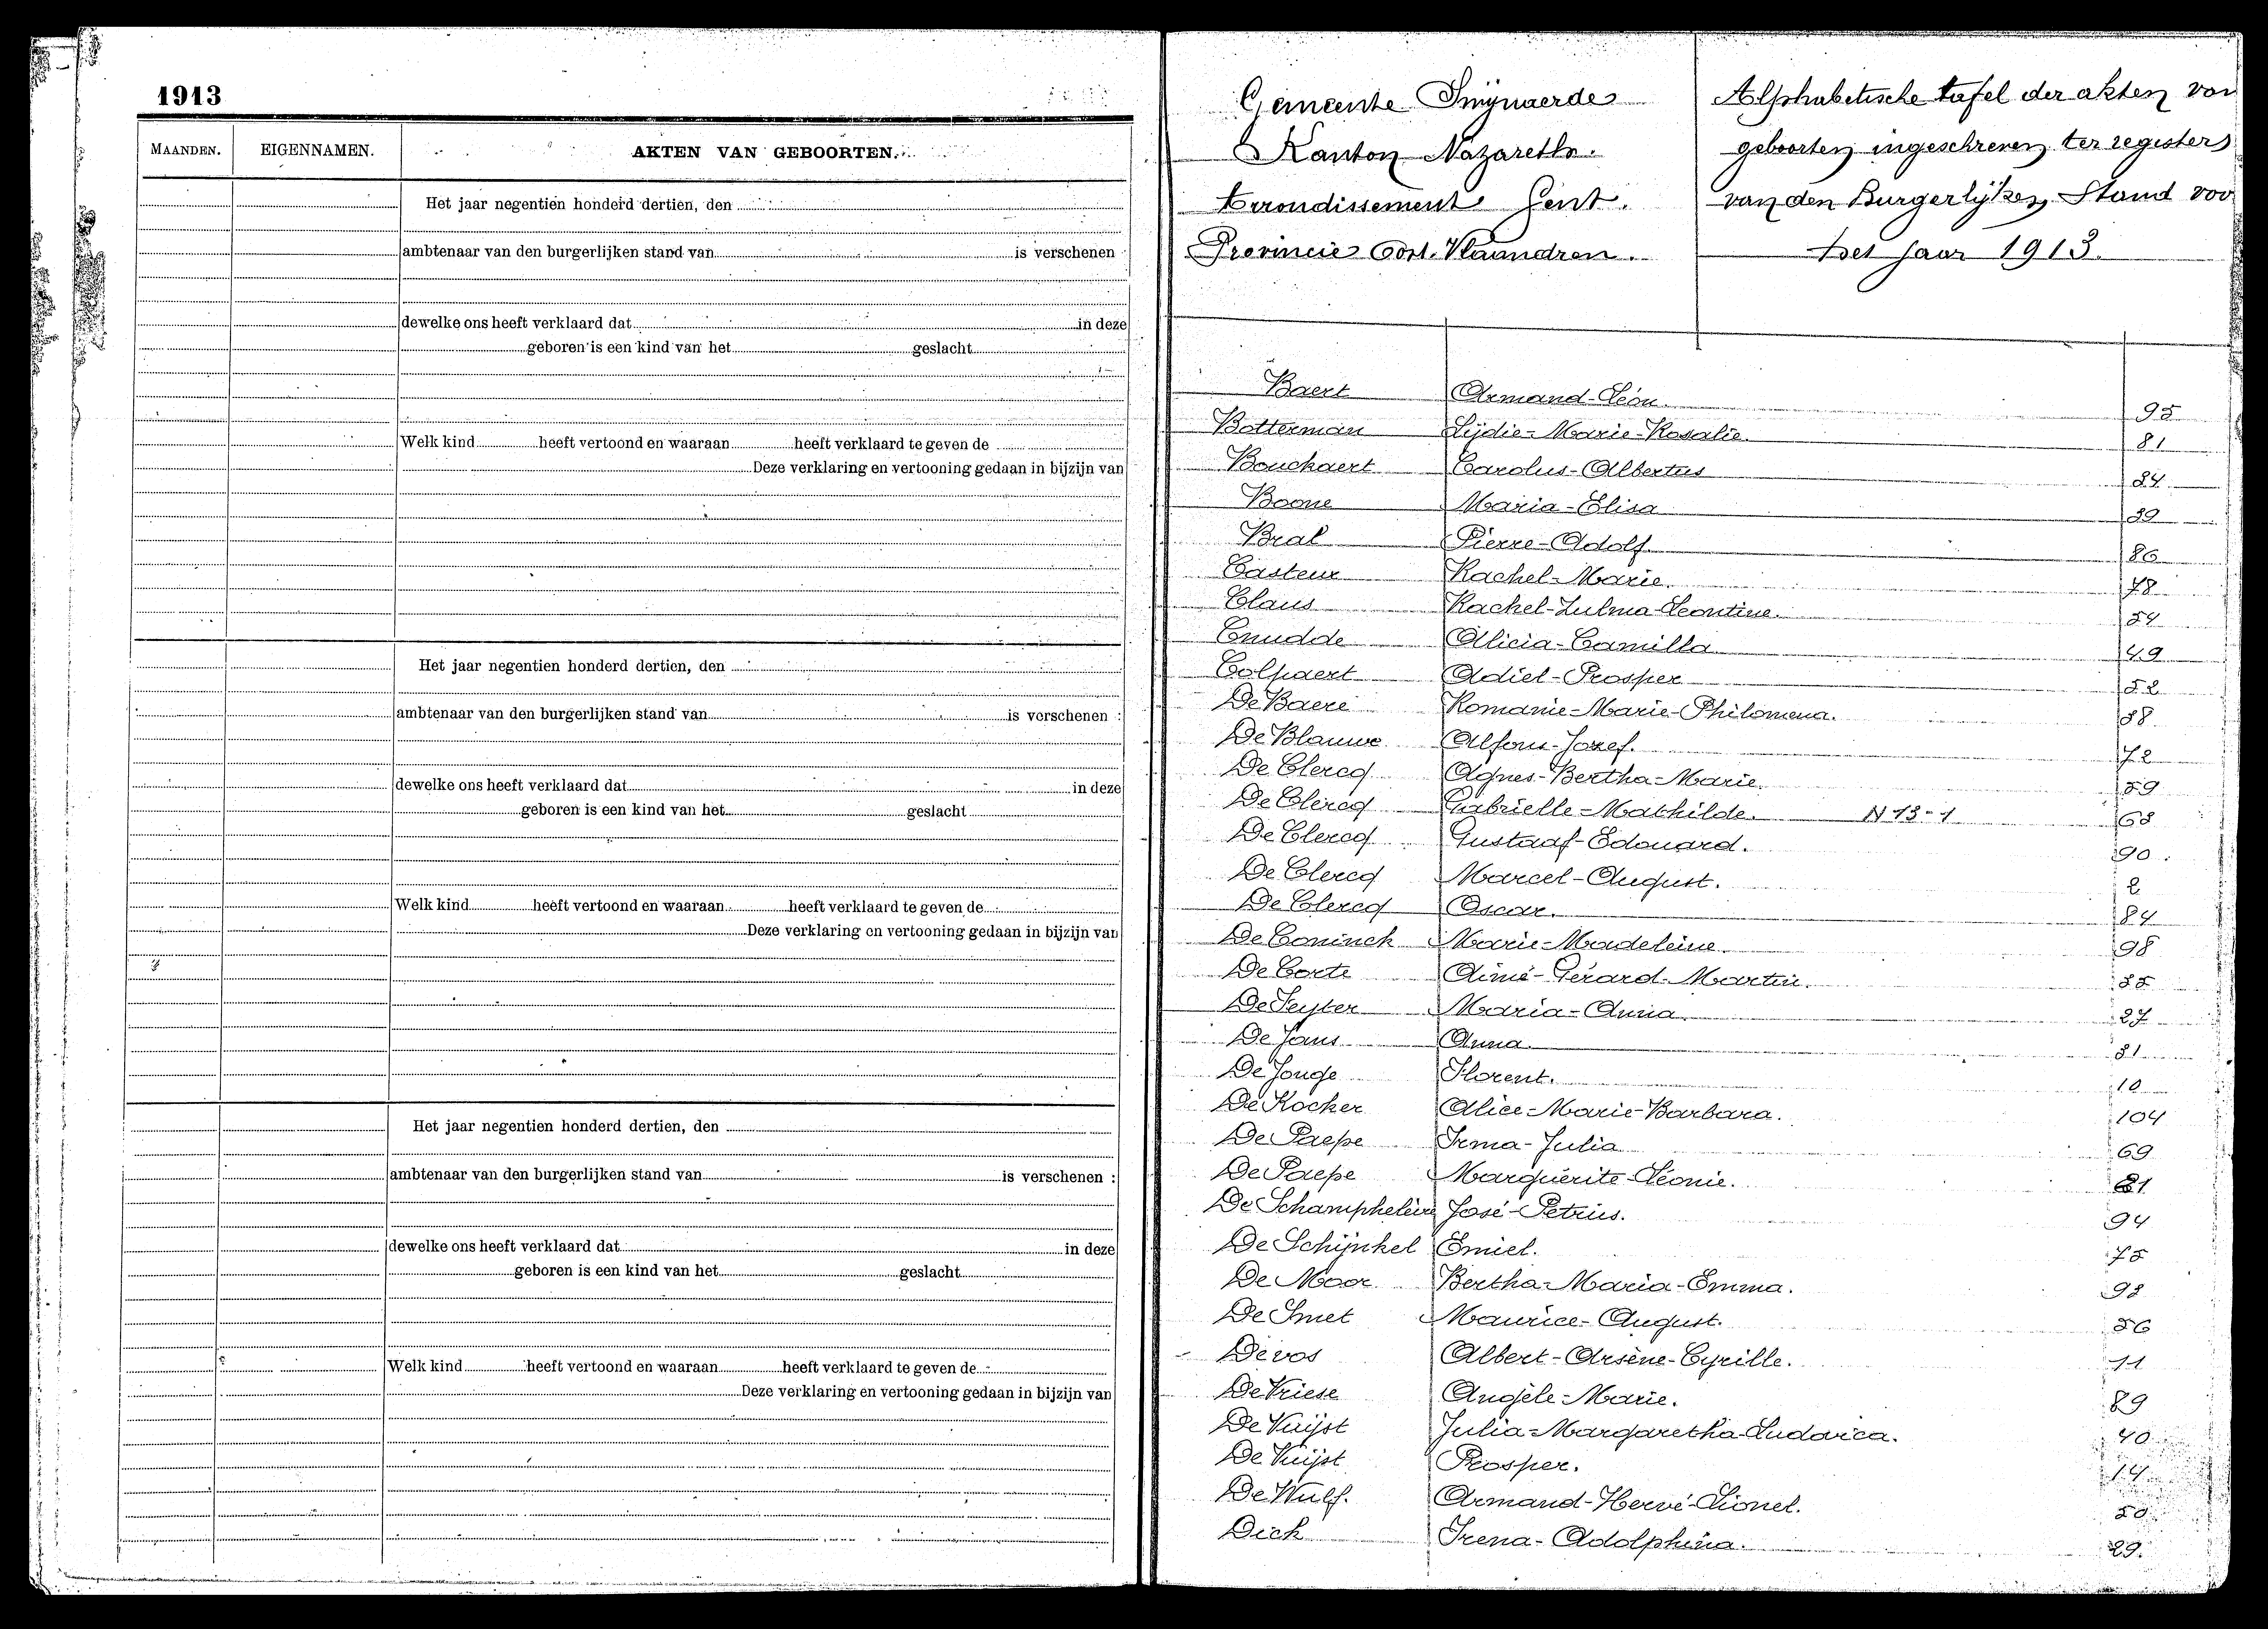 1913
MAANDEN. EIGENNAMEN. AKTEN VAN GEBOORTEN.
Het jaar negentien honderd dertien, den
ambtenaar van den burgerlijken stand van is verschenen
dewelke ons heeft verklaard dat in deze
geboren is een kind van het geslacht
Welk kind heeft vertoond en waaraan heeft verklaard te geven de
Deze verklaring en vertooning gedaan in bijzijn van
Het jaar negentien honderd dertien, den
ambtenaar van den burgerlijken stand van is verschenen :
dewelke ons heeft verklaard dat in deze
geboren is een kind van het geslacht
Welk kind heeft vertoond en waaraan heeft verklaard te geven de
Deze verklaring en vertooning gedaan in bijzijn van
Het jaar negentien honderd dertien, den
ambtenaar van den burgerlijken stand van is verschenen :
dewelke ons heeft verklaard dat in deze
geboren is een kind van het geslacht
Welk kind heeft vertoond en waaraan heeft verklaard te geven de
Deze verklaring en vertooning gedaan in bijzijn van
Gemeente Swijnaerde
Kanton Nazareth.
Arrondissement Gent.
Provincie Oost. Vlaandren.
Alphabetische tafel der akten van
geboorten ingeschreven ter registers
van den Burgerlijken Stand voo
het jaar 1913.
Baert Armand-Léon. 95
Botterman Lijdie-Marie-Rosalie. 81
Bouchaert Carolus-Albertus
Boone Maria-Elisa
Bral Pierre-Adolf. 86
Casteur Rachel-Marie. 78
Claus Rachel-Zulma-Leontine.
Cnudde Alicia-Camilla 49
Colpaert Adiel-Prosper 52
De Baere Romanie-Marie-Philomena.
De Blauwe Alfons-Jozef. 72
De Clercq Agnes-Bertha-Marie. 59
De Clercq Gabrielle-Mathilde. N 13-1 68
De Clercq Gustaaf-Edouard. 90.
De Clercq Marcel-August. 2
De Clercq Oscar. 84
De Coninck Marie-Madeleine. 98
De Corte Aimé-Gérard-Martin.
De Seyter Maria-Anna. 27
De Jans Anna
De Jonge Florent. 10
De Kocker Alice-Marie-Barbara. 104
De Paepe Irma-Julia 69
De Paepe Marguérite-Léonie.
De Schampheleire José-Petrus. 94
De Schijnkel Emiel. 75
De Moor Bertha-Maria-Emma.
De Smet Maurice-August. 56
Devos Albert-Arsène-Cyrille. 11
De Vriese Angèle-Marie. 89
De Vuijst Julia-Margaretha-Ludovica. 40
De Vuijst Prosper. 14
De Wulf. Armand-Hervé-Lionel.
Dick Irena-Adolphina. 29.